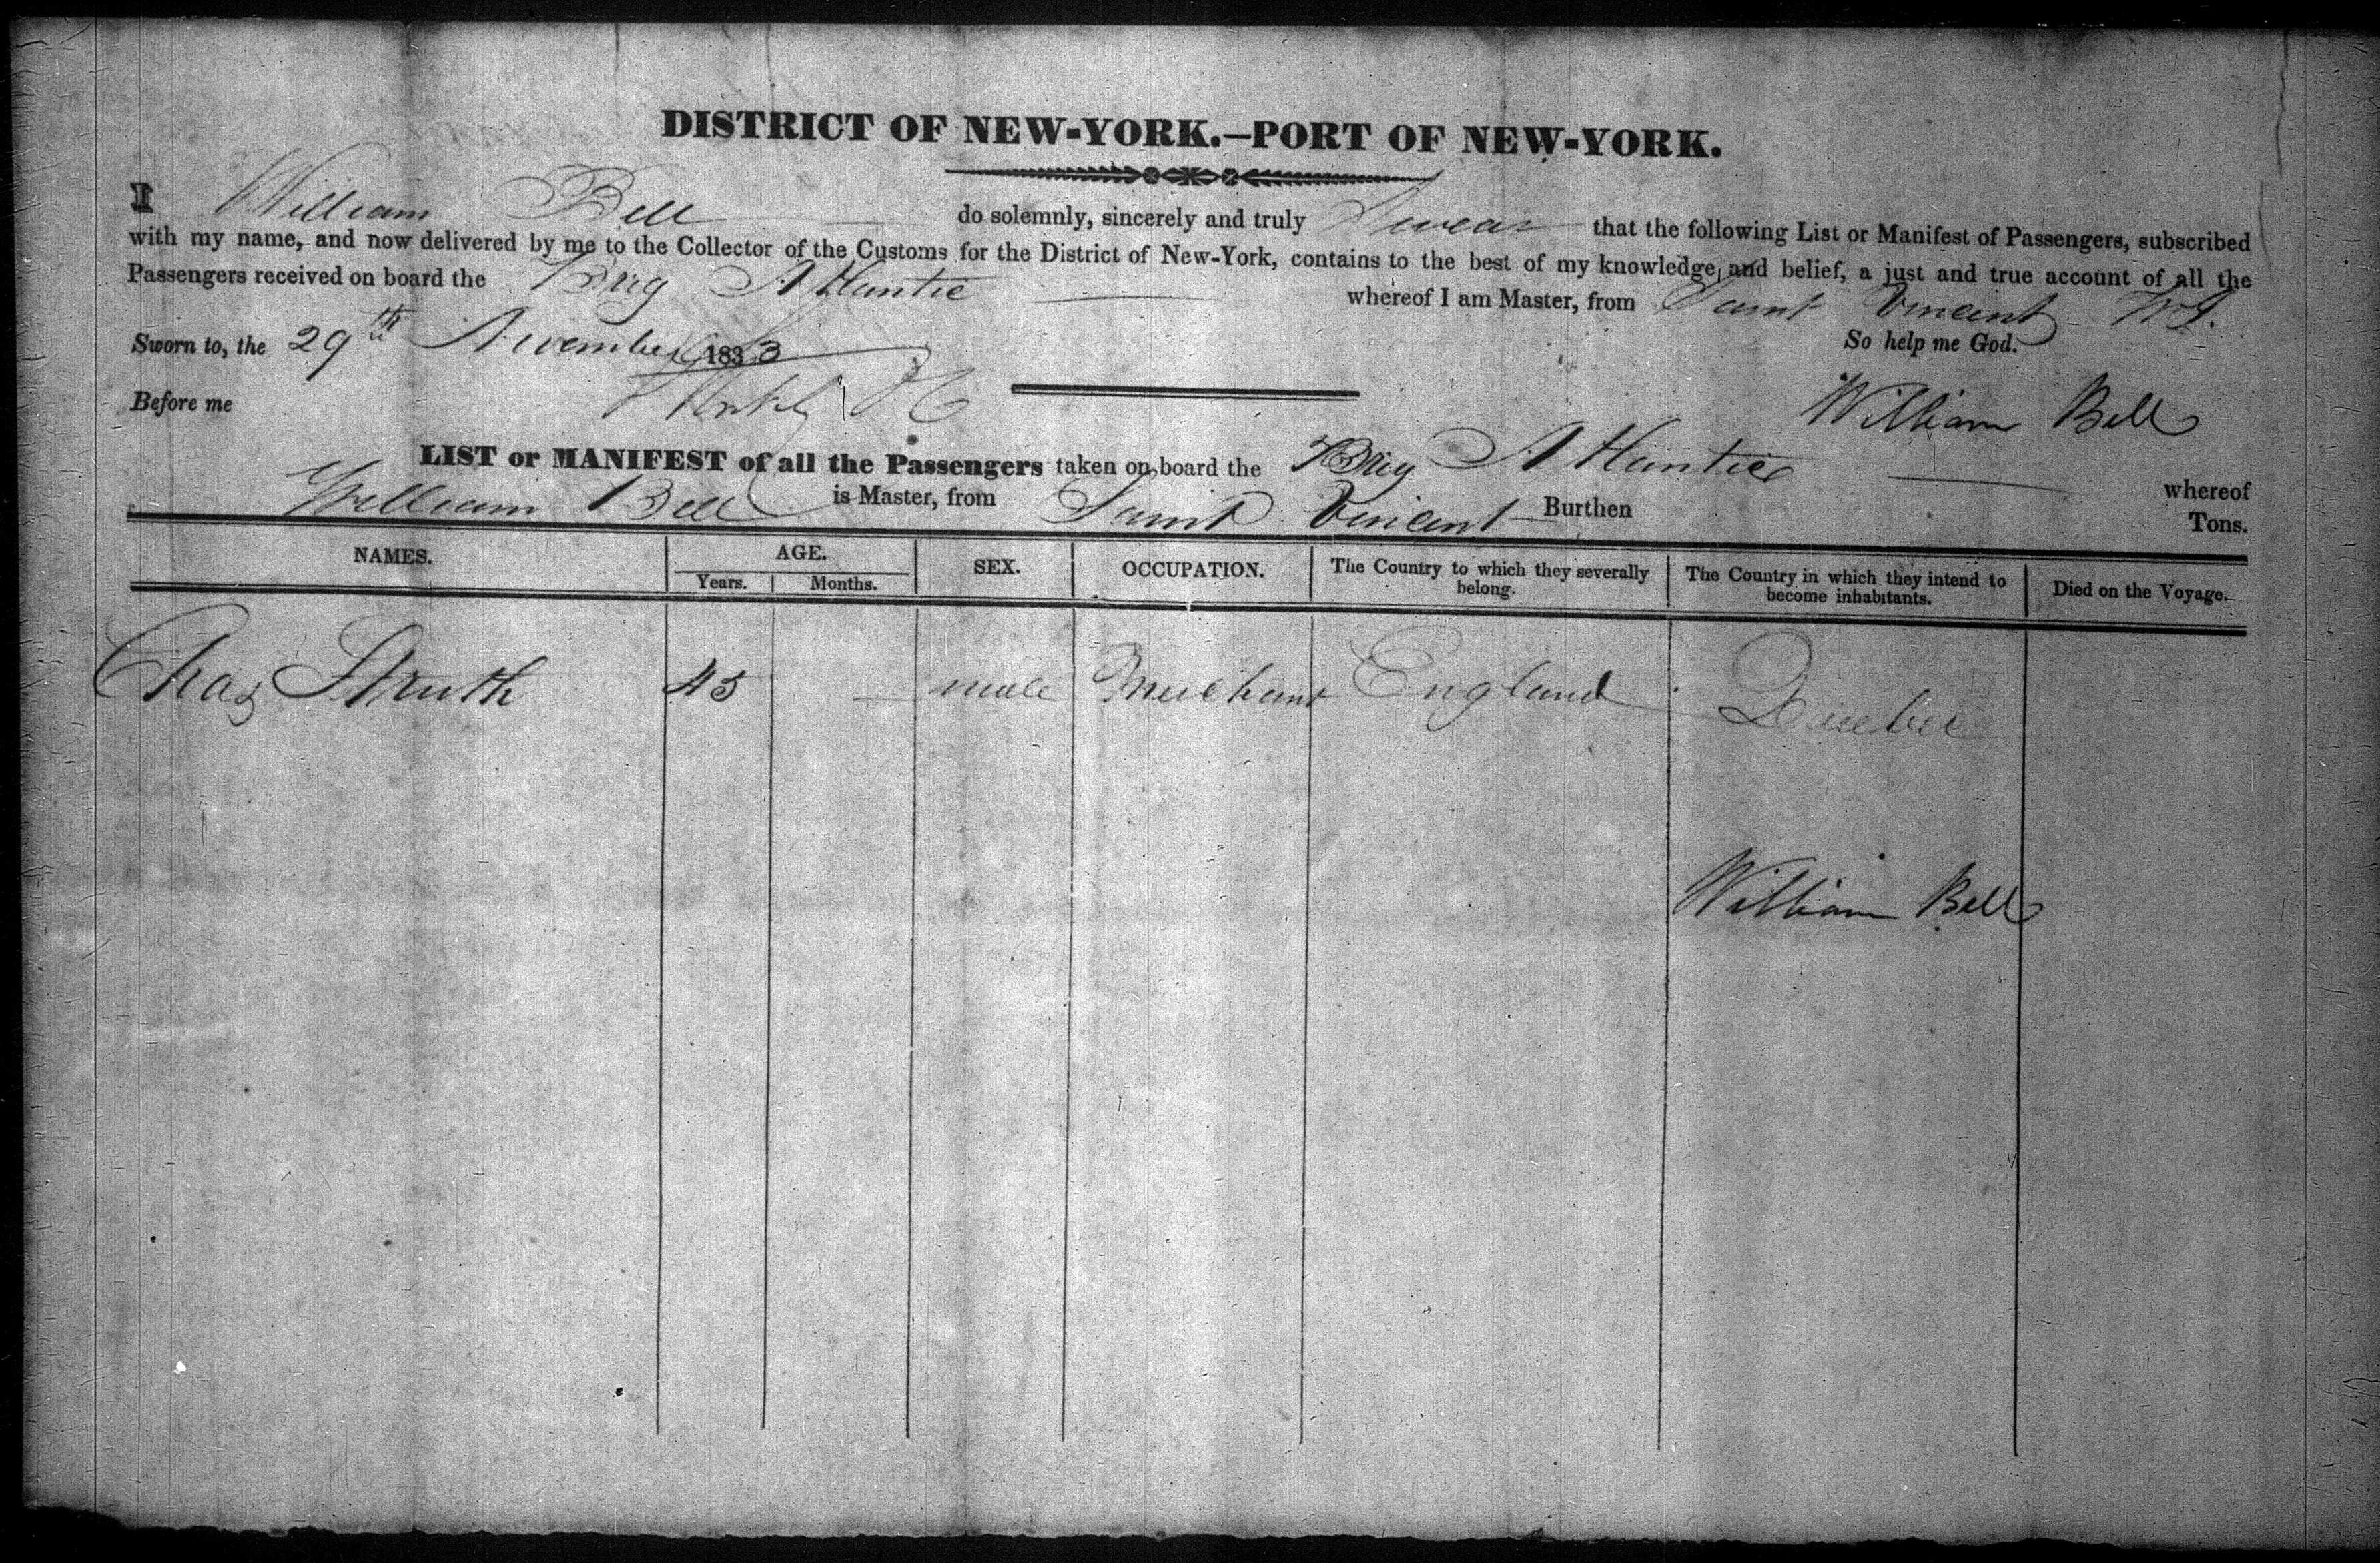 DISTRICT OF NEW-YORK.—PORT OF NEW-YORK.
I William Bell do solemnly, sincerely and truly Swear that the following List or Manifest of Passengers, subscribed
with my name, and now delivered by me to the Collector of the Customs for the District of New-York, contains to the best of my knowledge and belief, a just and true account of all the
Passengers received on board the Brig Atlantic whereof I am Master, from Saint Vincent W I.
Sworn to, the 29th November 1833 So help me God.
Before me William Bell
LIST or MANIFEST of all the Passengers taken on board the Brig Atlantic whereof
William Bell is Master, from Saint Vincent Burthen Tons.
NAMES. AGE. SEX. OCCUPATION. The Country to which they severally belong. The Country in which they intend to become inhabitants. Died on the Voyage.
Years. Months.
Chas Struth 45 male Merchant England Quebec
William Bell